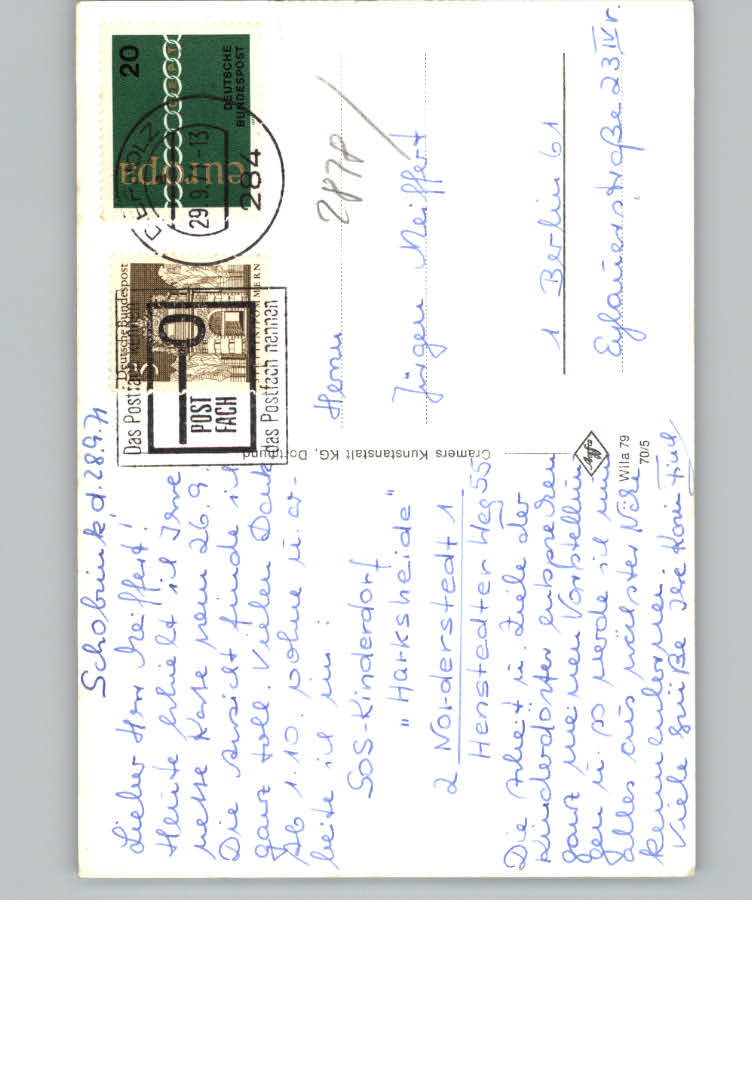 Schobrink d. 28.9.71
Lieber Herr Meiffert!
Heute erhielt ich Ihre
nette Karte vom 26.9.
Die Ansicht finde ich
ganz toll. Vielen Dank
Ab 1.10. wohne u. ar-
beite ich im:
SOS-Kinderdorf
"Harksheide"
2 Norderstedt 1
Henstedter Weg 55
Die Arbeit u. Ziele der
Kinderdörfer entsprechen
ganz meinen Vorstellun
gen u. so werde ich nun
alles aus nächster Nähe
kennenlernen.
Viele Grüße Ihre Karin
Cramers Kunstanstalt KG, Dortmund
Agfa
Wila 79
70/5
20
europa
CEPT
DEUTSCHE
BUNDESPOST
29.9.71-13
284
Deutsche Bundespost
5
Das Postfach
POST
FACH
das Postfach nennen
2878
Herrn
Jürgen Meiffert
1 Berlin 61
Eylauerstraße 23 IV r.